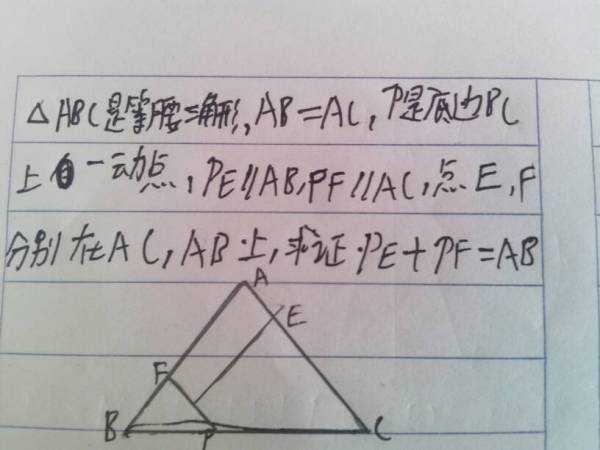 △ABC是等腰三角形,AB=AC,P是底边BC
上一动点,PE∥AB,PF∥AC,点E,F
分别在AC,AB上,求证PE+PF=AB
A
E
F
B
P
C